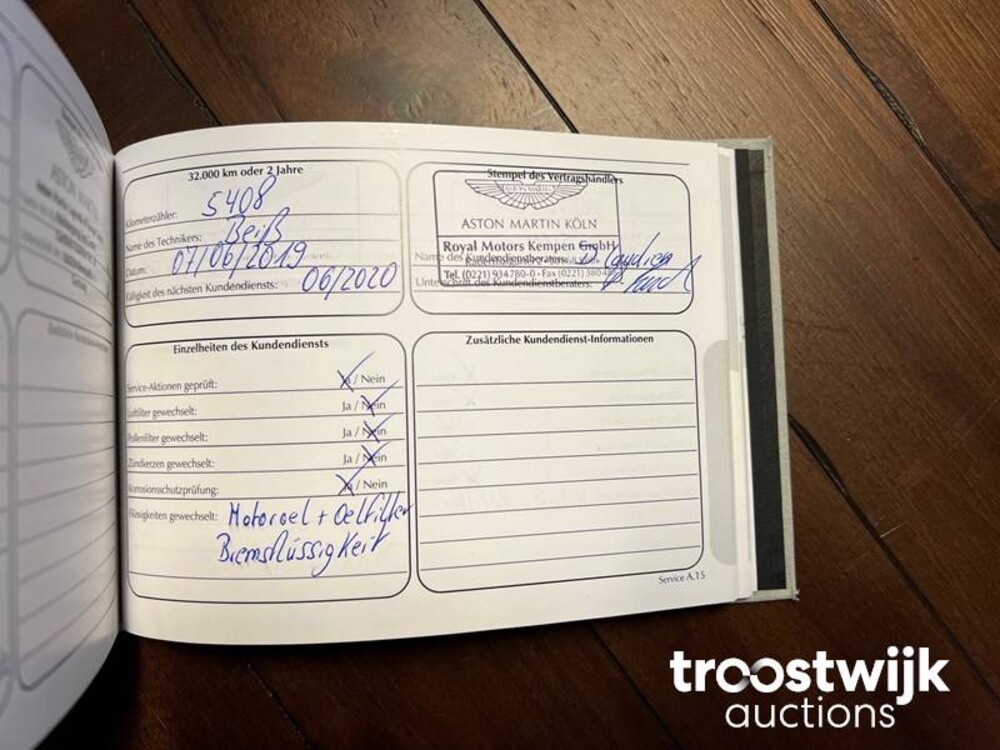 32.000 km oder 2 Jahre
Kilometerzähler: 5408
Name des Technikers: Beiß
Datum: 07/06/2019
Fälligkeit des nächsten Kundendiensts: 06/2020
Stempel des Vertragshändlers
ASTON MARTIN
ASTON MARTIN KÖLN
Royal Motors Kempen GmbH
Name des Kundendienstberaters:
Tel. (0221) 934780-0 • Fax (0221)
Unterschrift des Kundendienstberaters:
Einzelheiten des Kundendiensts
Service-Aktionen geprüft: Ja / Nein
Luftfilter gewechselt: Ja / Nein
Pollenfilter gewechselt: Ja / Nein
Zündkerzen gewechselt: Ja / Nein
Korrosionsschutzprüfung: Ja / Nein
Flüssigkeiten gewechselt: Motoroel + Oelfilter
Bremsflüssigkeit
Zusätzliche Kundendienst-Informationen
Service A.15
troostwijk
auctions